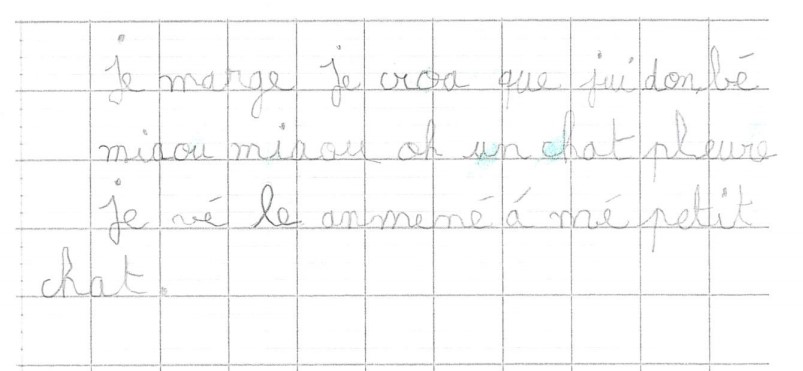 je marge je croa que jui donbé
miaou miaou oh un chat pleure
je vé le anmené á mé petit
chat.